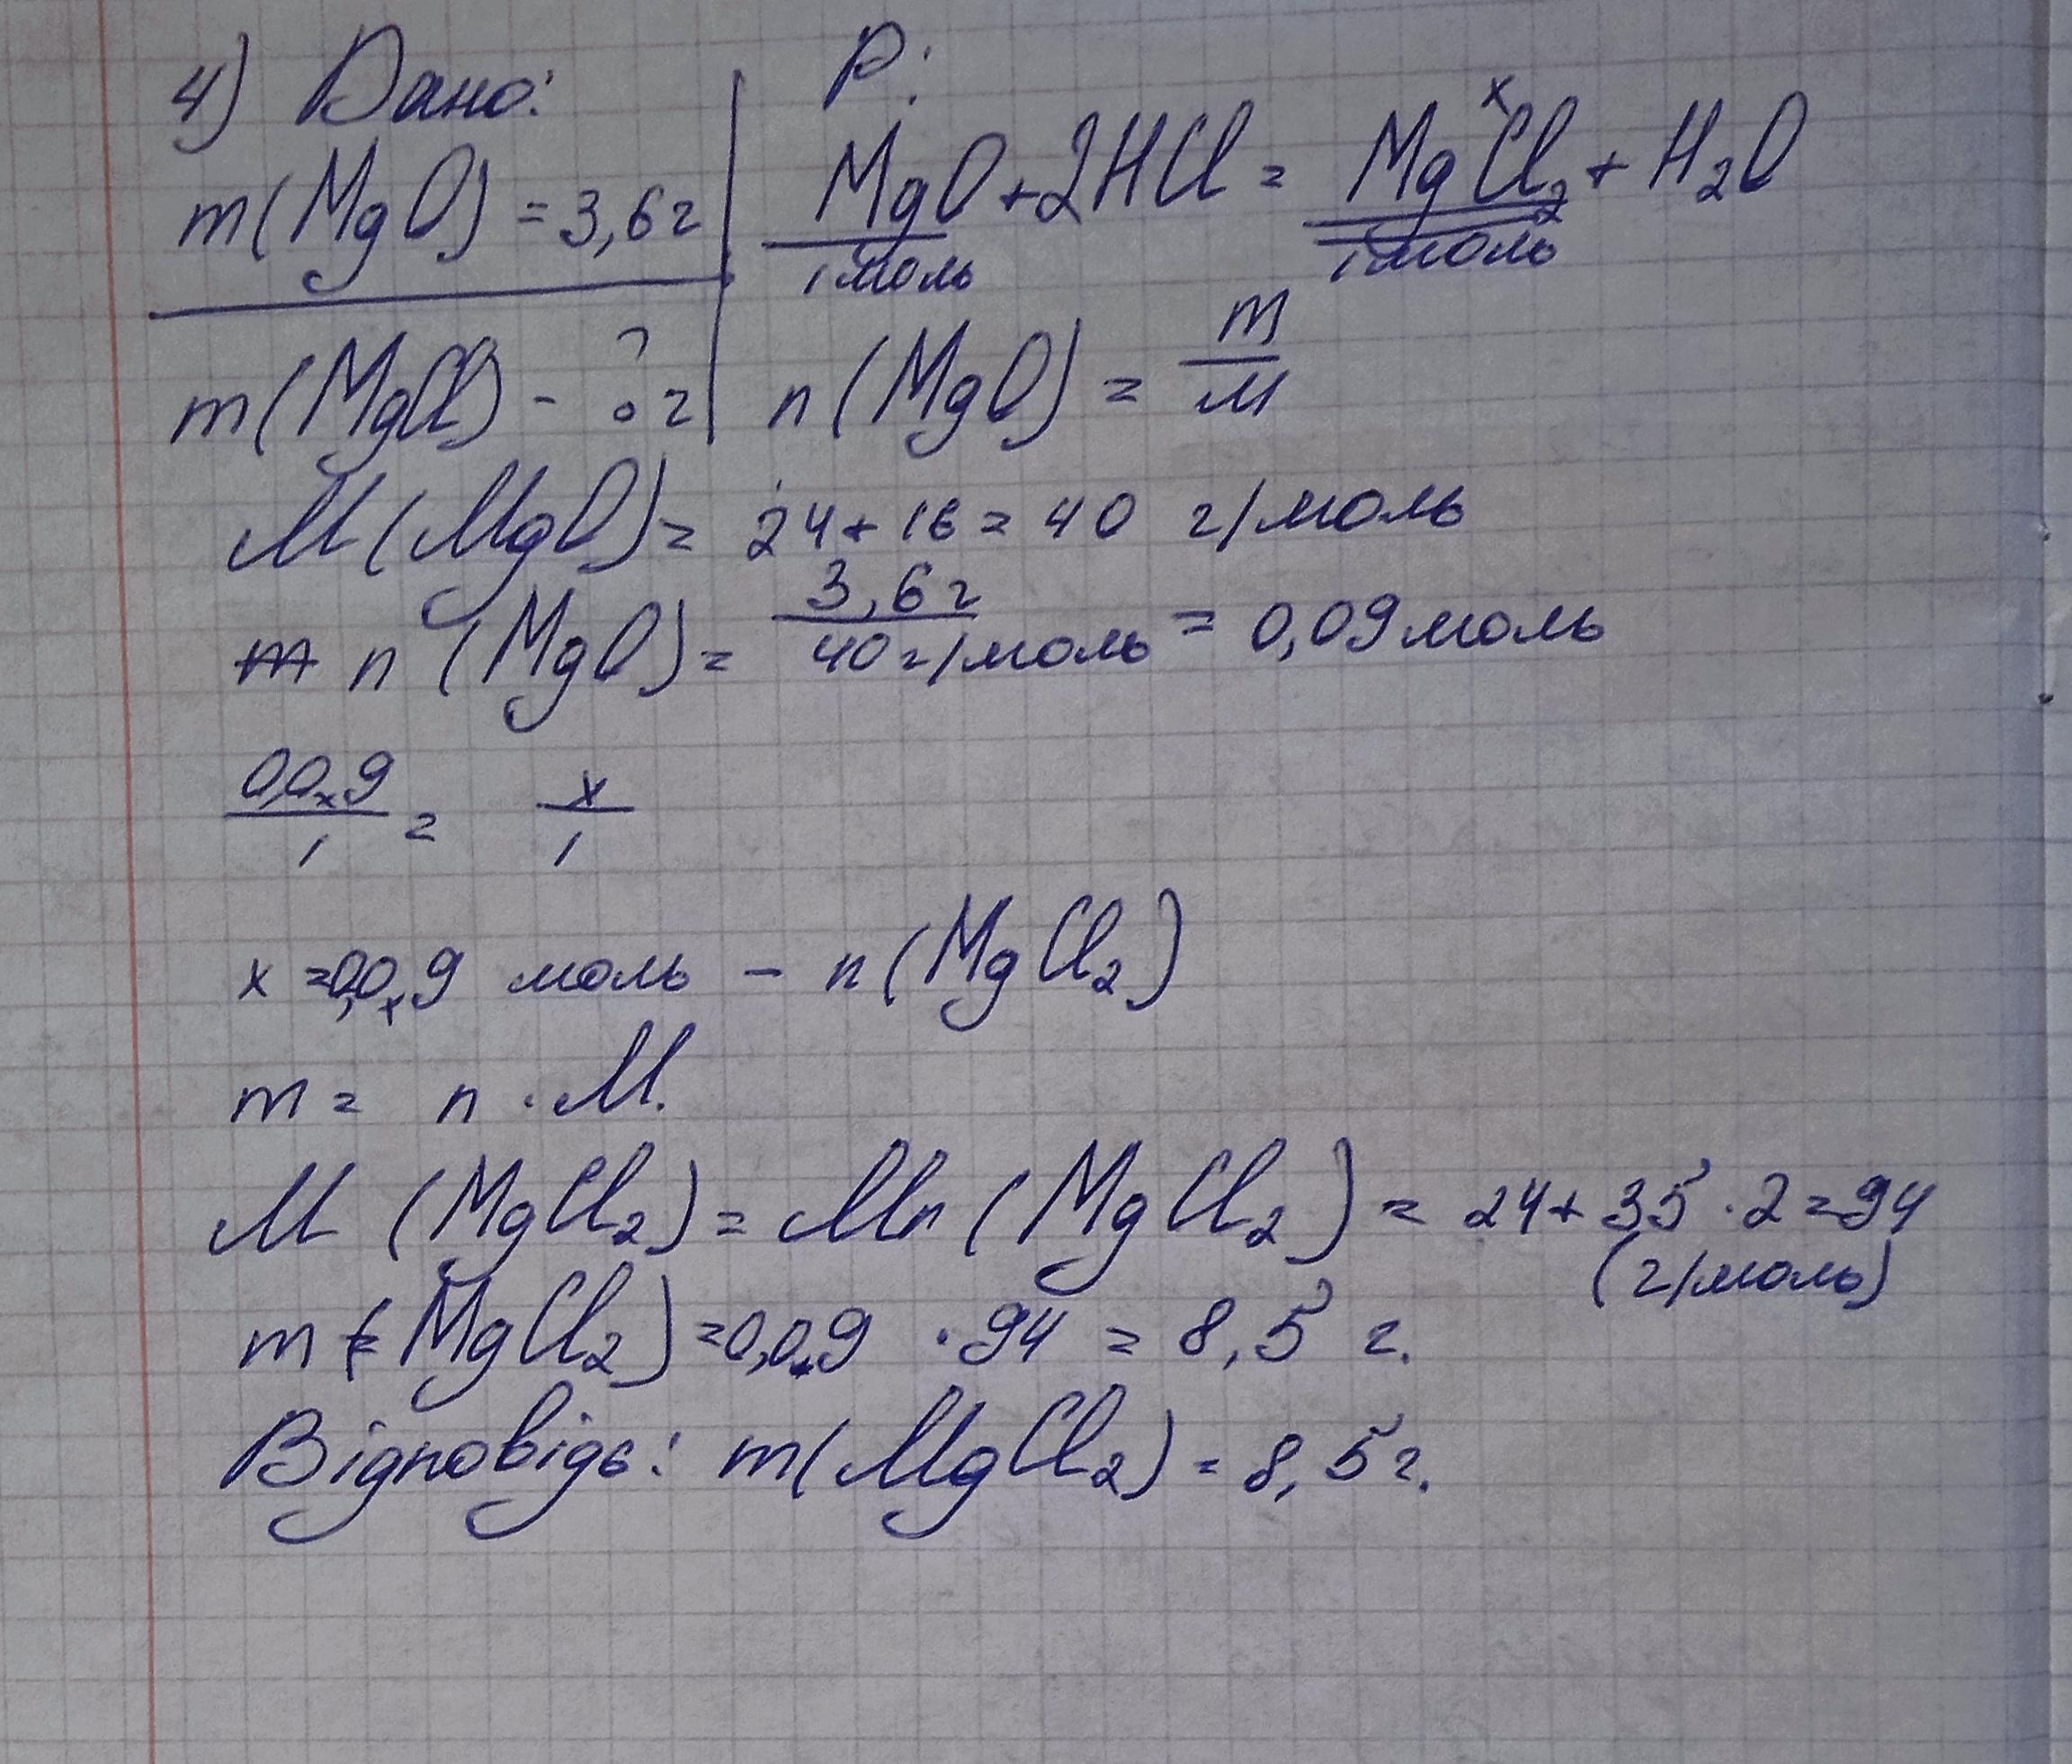 4) Дано: Р:
m(MgO) = 3,6 г MgO + 2HCl = MgCl₂ + H₂O
x
1 моль 1 моль
m(MgCl) - ? г n(MgO) = m/M
M(MgO) = 24 + 16 = 40 г/моль
n(MgO) = 3,6 г / 40 г/моль = 0,09 моль
0,09/1 = x/1
x = 0,09 моль - n(MgCl₂)
m = n · M.
M(MgCl₂) = Mr(MgCl₂) = 24 + 35 · 2 = 94
(г/моль)
m(MgCl₂) = 0,09 · 94 = 8,5 г.
Відповідь: m(MgCl₂) = 8,5 г.